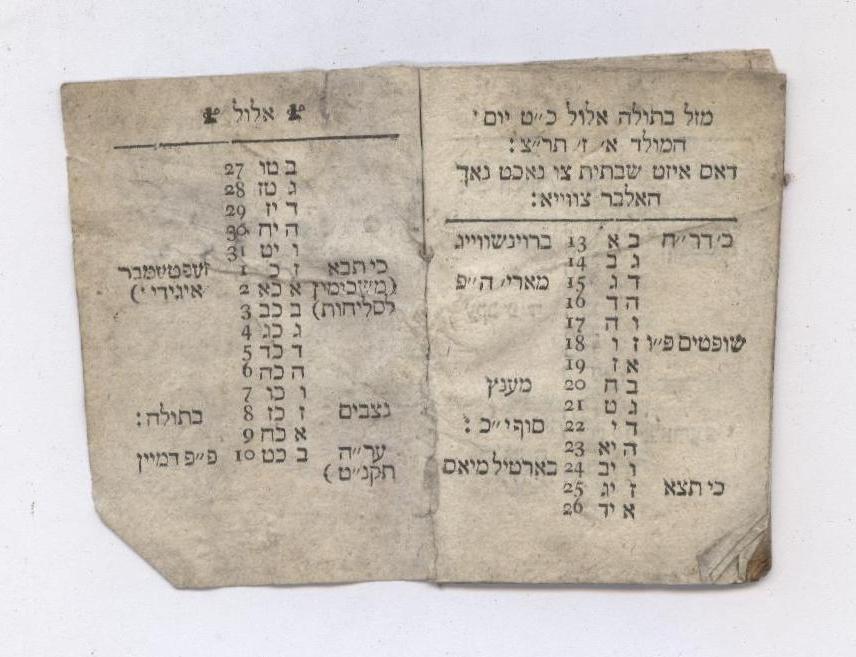 מזל בתולה אלול כ״ט יום׳
המולד א׳ ז׳ תר״צ :
דאס איזט שבתית צו נאכט נאך
האלבר צווייא :
כ׳דר״ח ב א 13 ברוינשווייג
ג ב 14
ד ג 15 מארי׳ ה״פ
ה ד 16
ו ה 17
שופטים פ״ו ז ו 18
א ז 19
ב ח 20 מענץ
ג ט 21
ד י 22 סוף י״כ :
ה יא 23
ו יב 24 בארטילמיאס
כי תצא ז יג 25
א יד 26
אלול
ב טו 27
ג טז 28
ד יז 29
ה יח 30
ו יט 31
כי תבא ז כ 1 זעפטעמבר
(משכימין א כא 2 איגידי׳)
לסליחות) ב כב 3
ג כג 4
ד כד 5
ה כה 6
ו כו 7
נצבים ז כז 8 בתולה :
א כח 9
ער״ה ב כט 10 פ״פ דמיין
תקנ״ט)